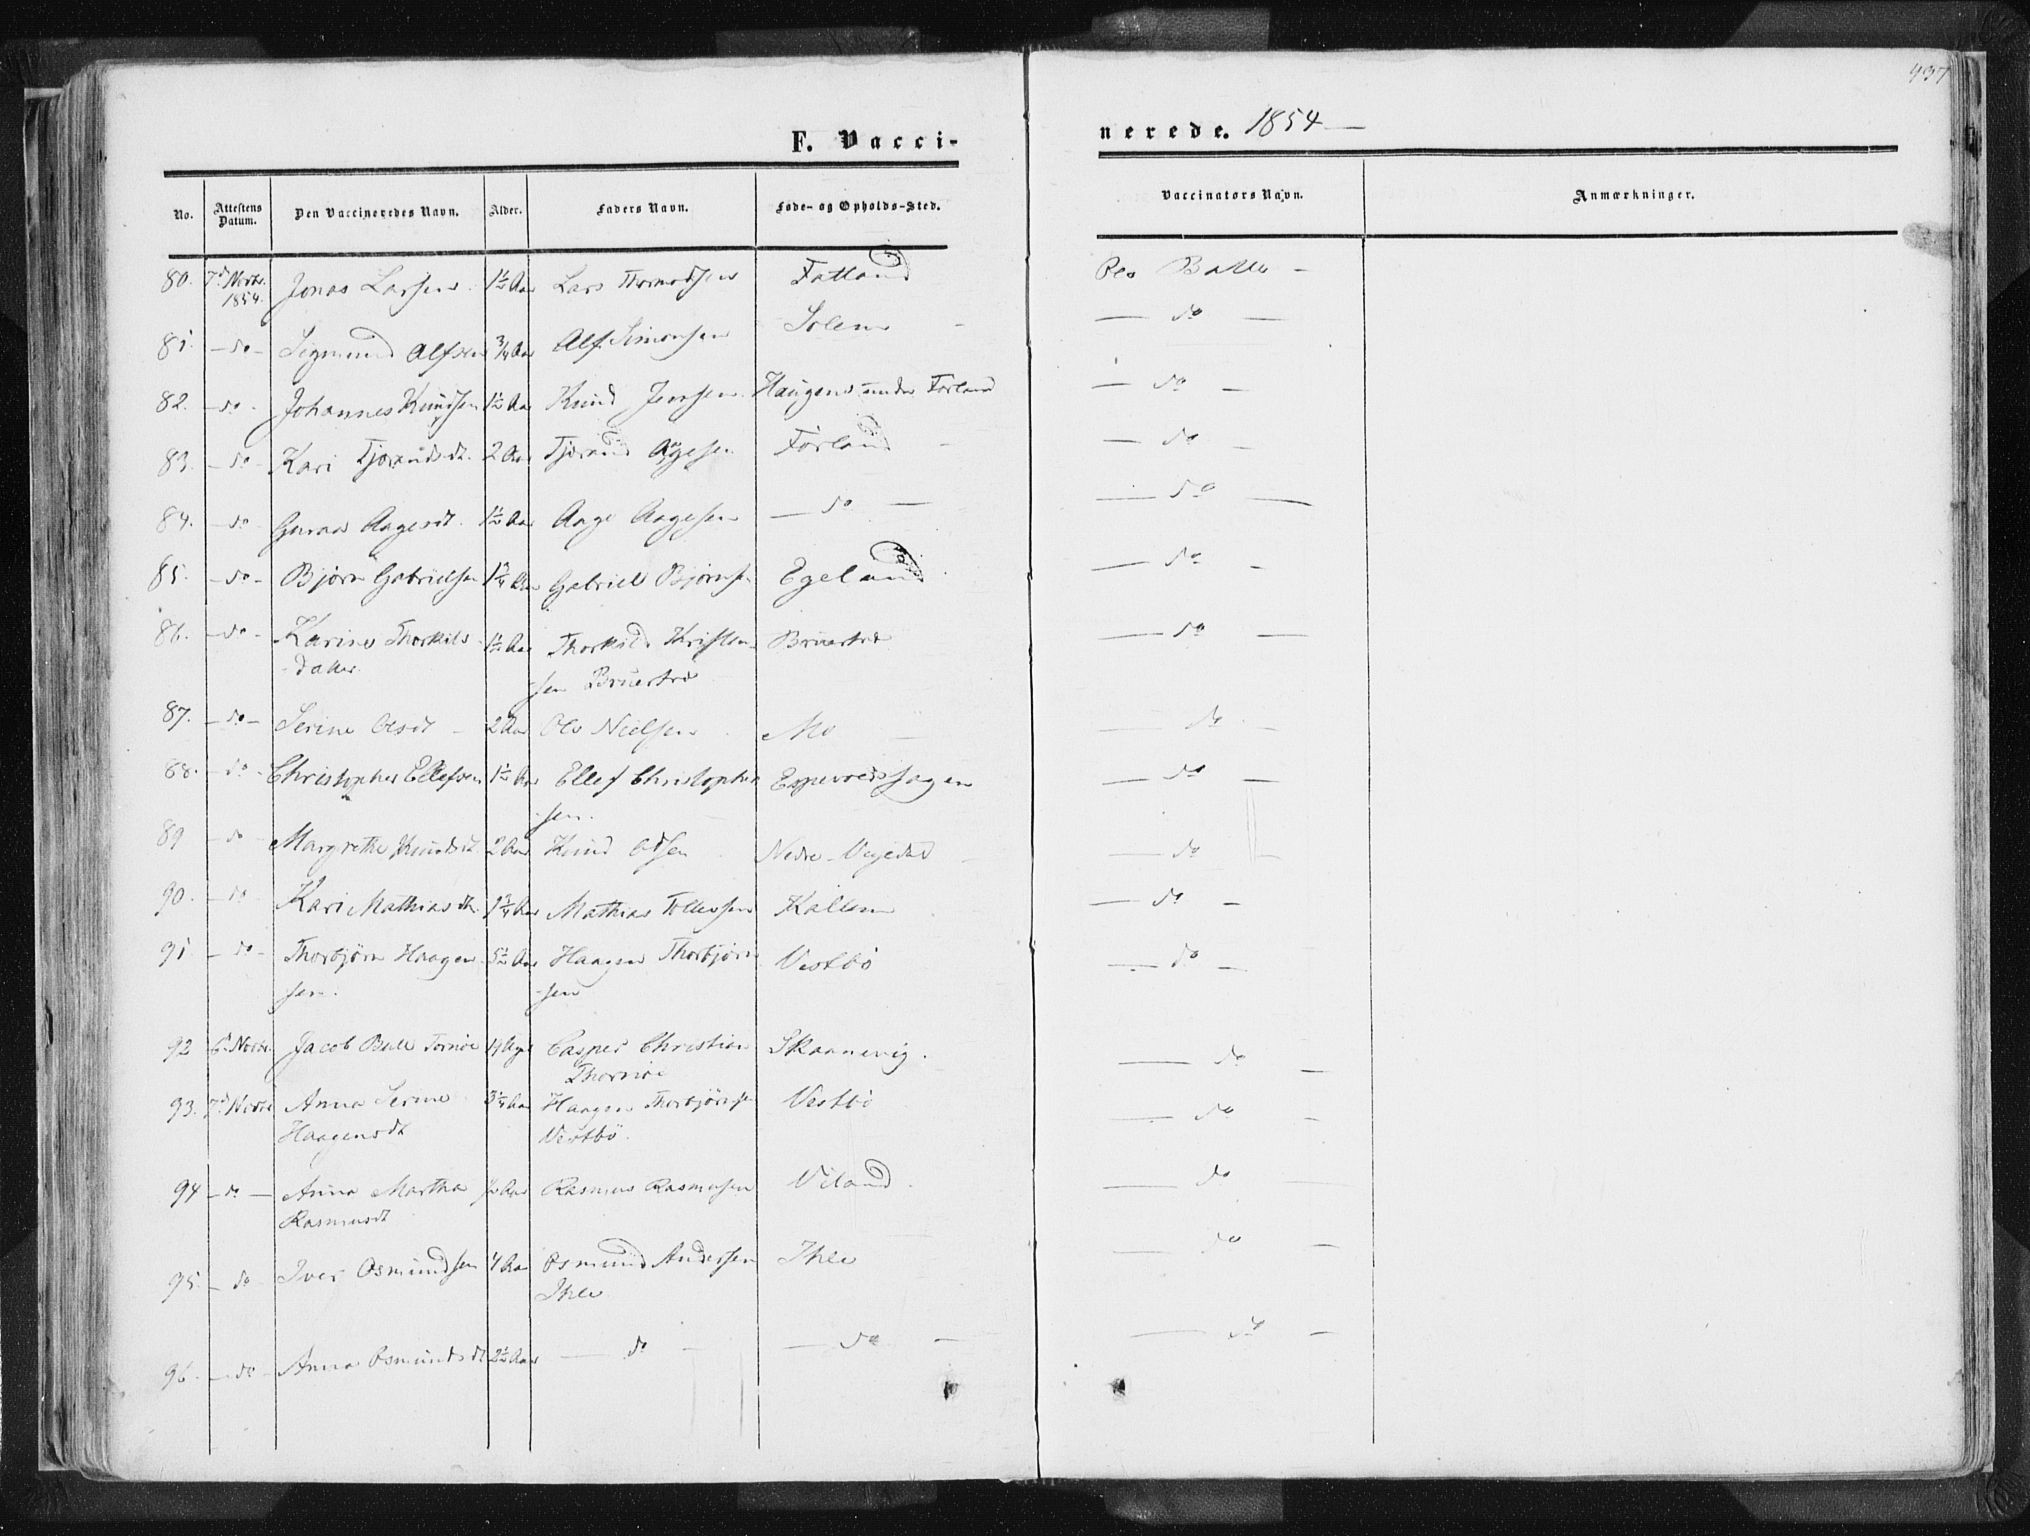 437
F. Vacci-
nerede. 1854 —
No. Attestens Datum. Den Vaccineredes Navn. Alder. Faders Navn. Føde- og Opholds-Sted. Vaccinators Navn. Anmærkninger.
80. 7d Novbr. 1854. Jonas Larsen 1½ Aar Lars Thormodsen Fatland
81. - do - Sigmund Alfsen ¾ Aar Alf Simonsen Solem - — do —
82. - do - Johannes Knudsen 1½ Aar Knud Jensen Haugene under Førland — do —
83. - do - Kari Tjerandsdt. 2 Aar Tjerand Aagesen Førland - — do —
84. - do Guraa Aagesdt. 1½ Aar Aage Aagesen — do — — do —
85. - do - Bjørn Gabrielsen 1¾ Aar Gabriel Bjørnsen Egeland — do -
86. - do - Karine Thorkils- 1½ Aar Thorkild Kristen- — do —
datter sen
87. - do - Serine Olsdt - 2 Aar Ole Nielsen Mo — do —
88. - do - Christopher Ellefsen 1½ Aar Ellef Christopher- Espevoldshagen — do —
sen.
89 - do - Margrethe Knudsdt 2 Aar Knud Olsen Nedre- — do —
90. - do Kari Mathiasdtr. 1¾ Aar Mathias Tollevsen Kallem — do -
91 - do - Thorbjørn Haagen- 5½ Aar Haagen Thorbjørn- Vestbø — do -
sen. sen
92 6d Novbr. Jacob Bull Tornøe Casper Christian Skaanevig. — do —
Thornøe
93. 7d Novbr Anna Serine 3¼ Aar Haagen Thorbjørnsen Vestbø — do —
Haagensdt Vestbø.
94 - do - Anna Martha ½ Aar Rasmus Rasmusen Viland. — do —
Rasmusdt
95. - do Iver Osmundsen 4 Aar Osmund Andersen Ihle — do -
Ihle
96. - do - Anna Osmundsdt 2½ Aar — do — — do — — do -